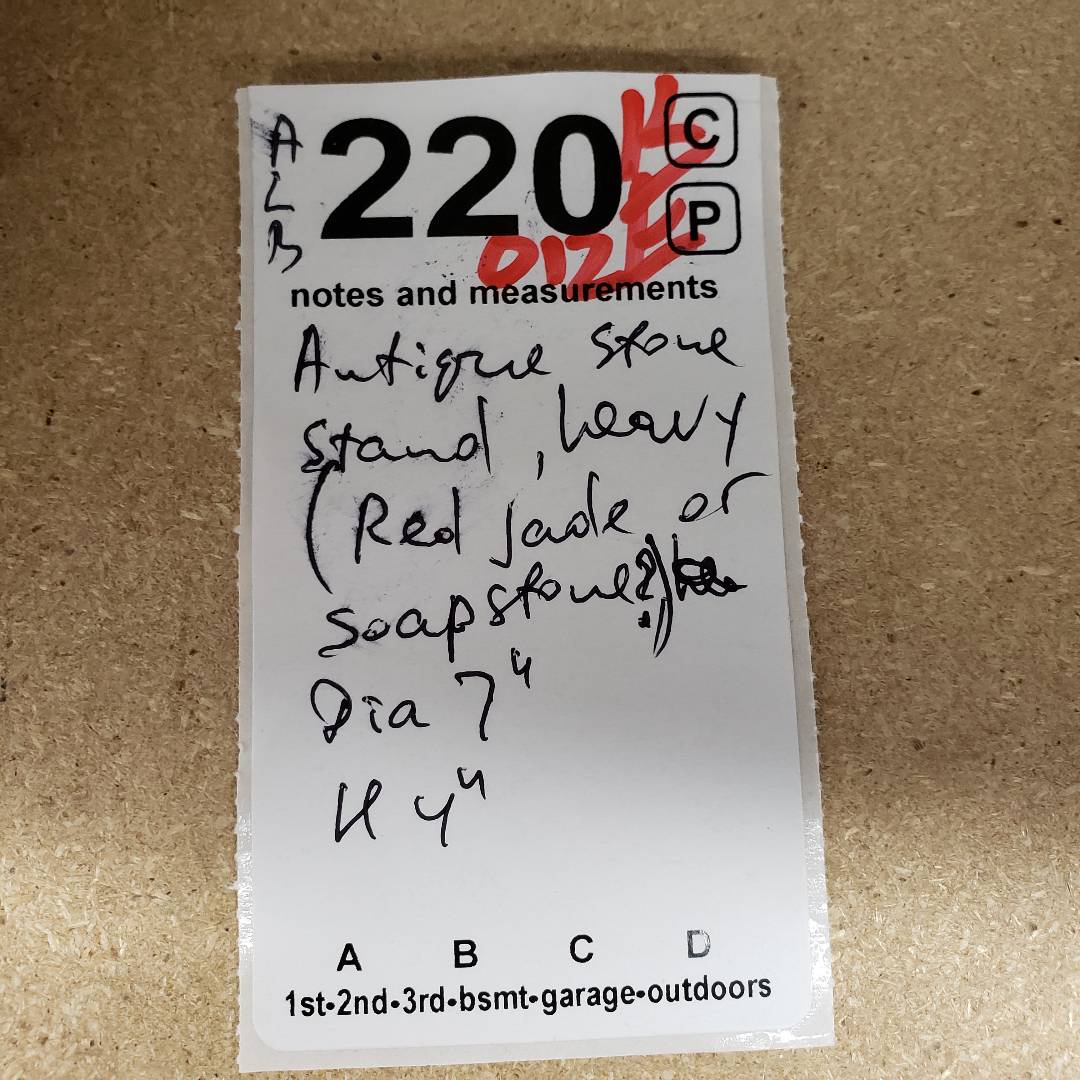 A
L
B
220
C
P
notes and measurements
Antique stone
stand, heavy
(Red jade or
soapstone?)
Dia 7"
H 4"
A B C D
1st•2nd•3rd•bsmt•garage•outdoors